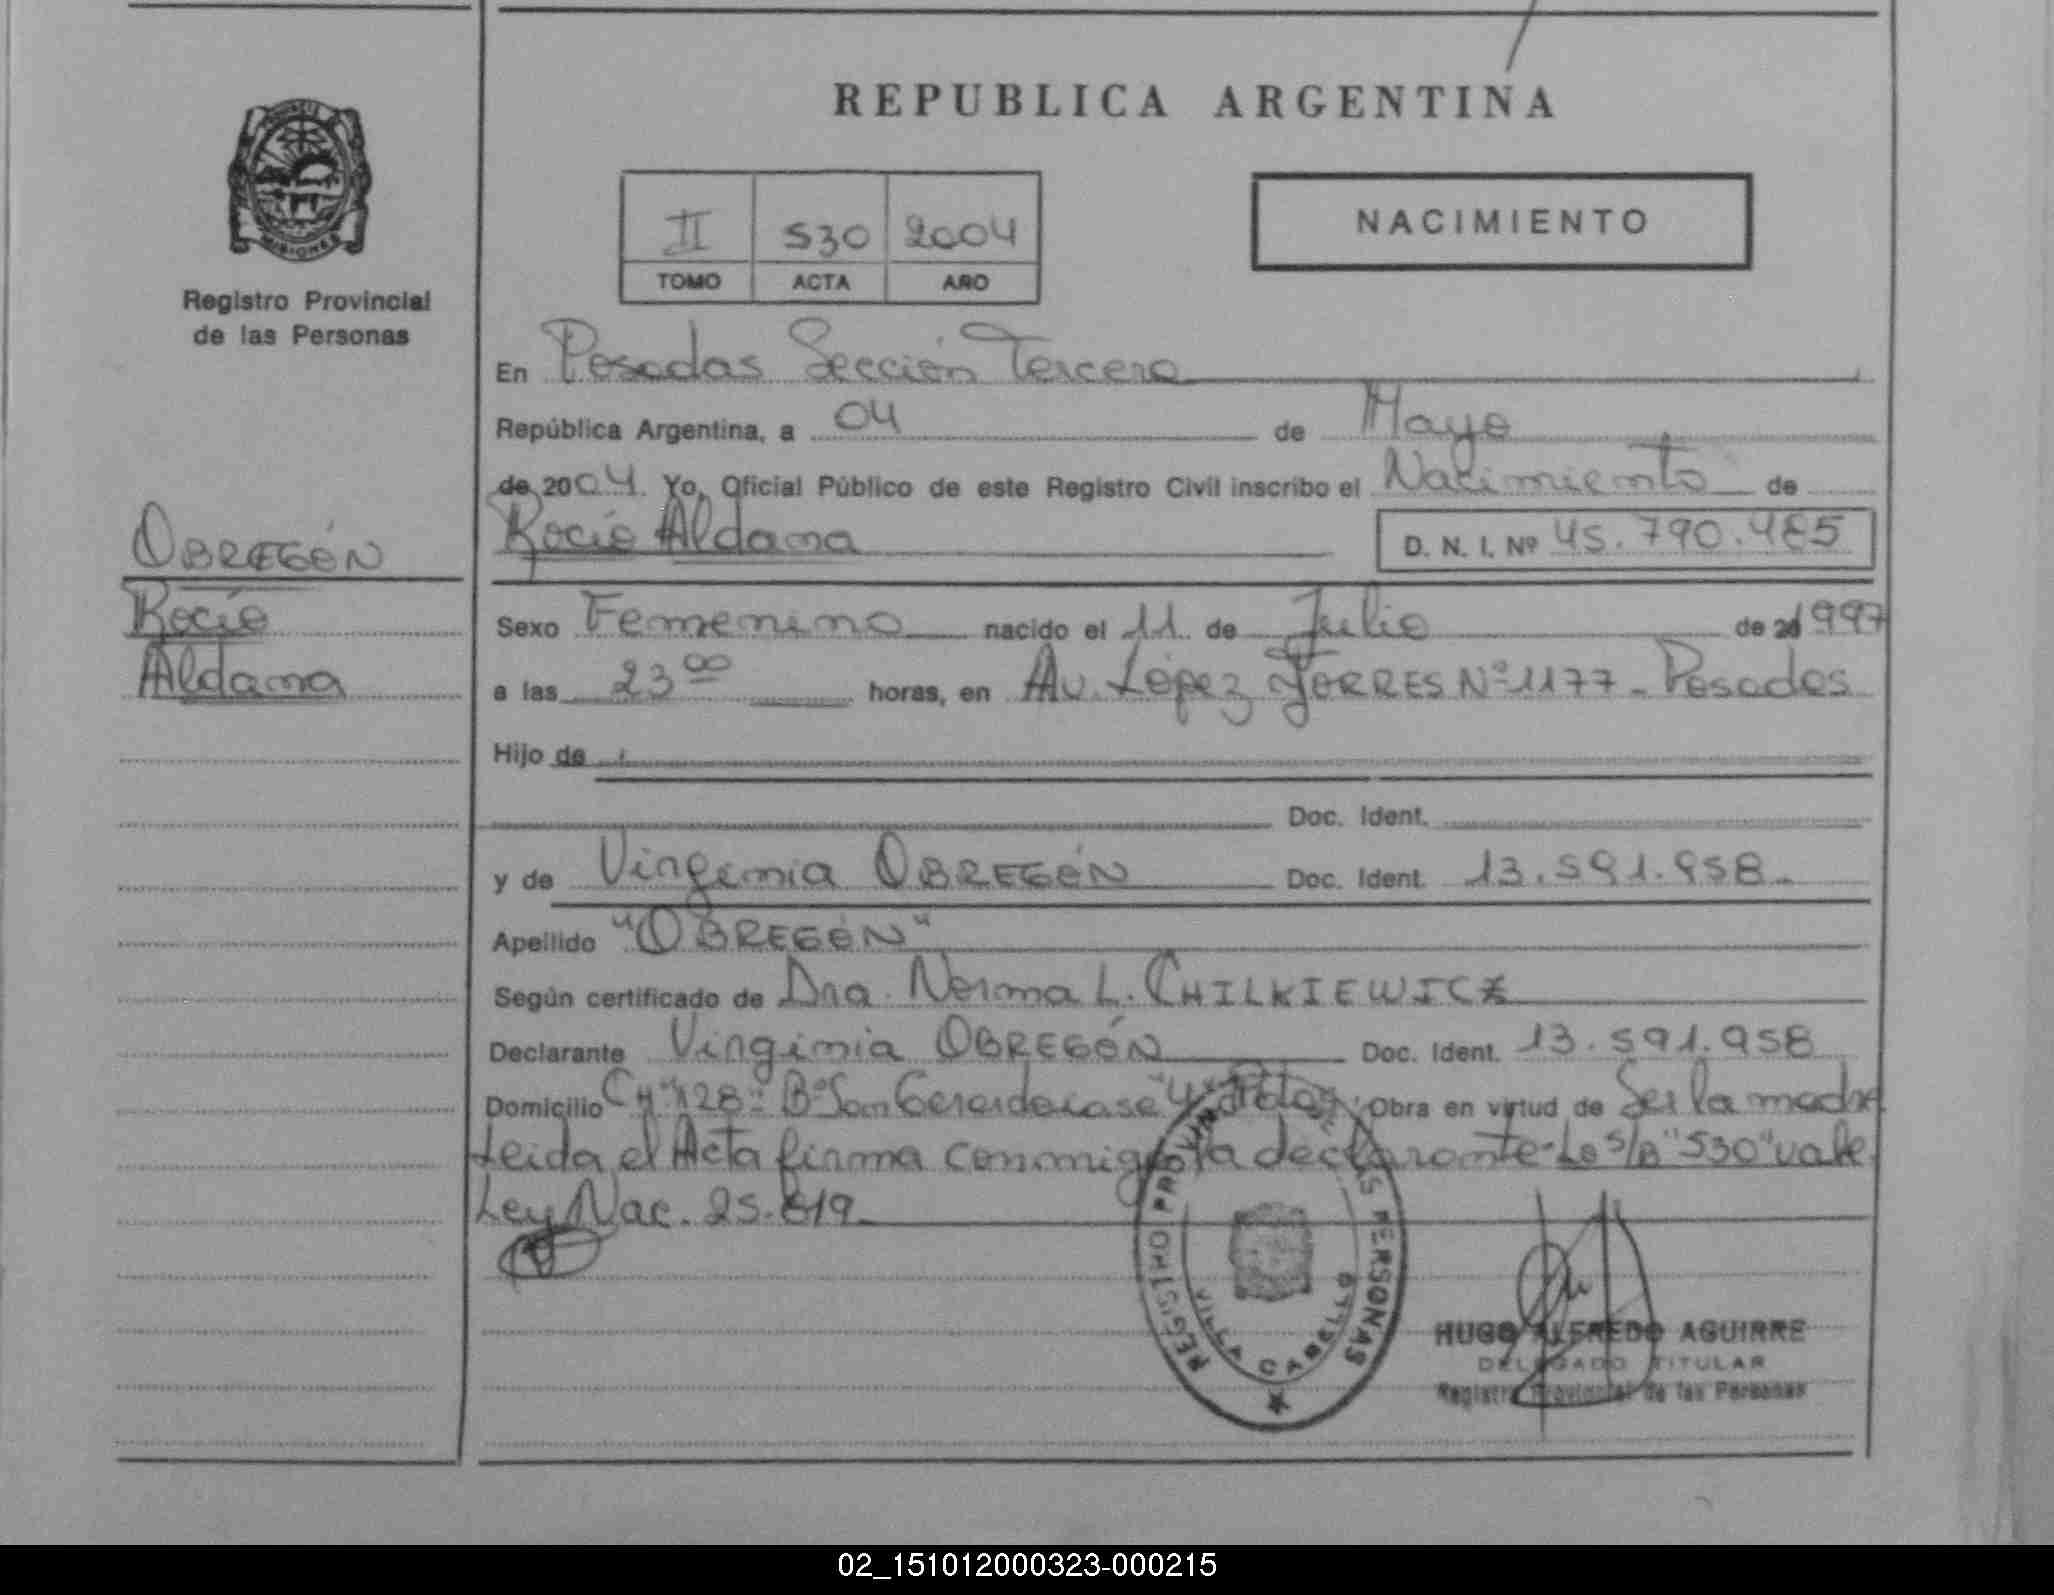 REPUBLICA ARGENTINA
PROVINCIA
MISIONES
Registro Provincial
de las Personas
II 530 2004
TOMO ACTA AÑO
NACIMIENTO
En Posadas Sección Tercera
República Argentina, a 04 de Mayo
de 2004. Yo, Oficial Público de este Registro Civil inscribo el Nacimiento de
Rocío Aldana D. N. I. Nº 45.790.485
OBREGÓN
Rocío
Aldana
Sexo Femenino nacido el 11 de Julio de 1997
a las 23 00 horas, en Av. López TORRES Nº 1177 - Posadas
Hijo de
Doc. Ident.
y de Virginia OBREGÓN Doc. Ident. 13.591.958.-
Apellido "OBREGÓN"
Según certificado de Dra. Norma L. CHILKIEWICZ
Declarante Virginia OBREGÓN Doc. Ident. 13.591.958
Domicilio CH "128" Bº San Gerardo casa "4" Pdas. Obra en virtud de Ser la madre
Leida el Acta firma conmigo la declarante - Lo s/b "530" vale
Ley Nac. 25.819
REGISTRO PROVINCIAL DE LAS PERSONAS
VILLA CABELLO
HUGO ALFREDO AGUIRRE
DELEGADO TITULAR
Registro Provincial de las Personas
02_151012000323-000215